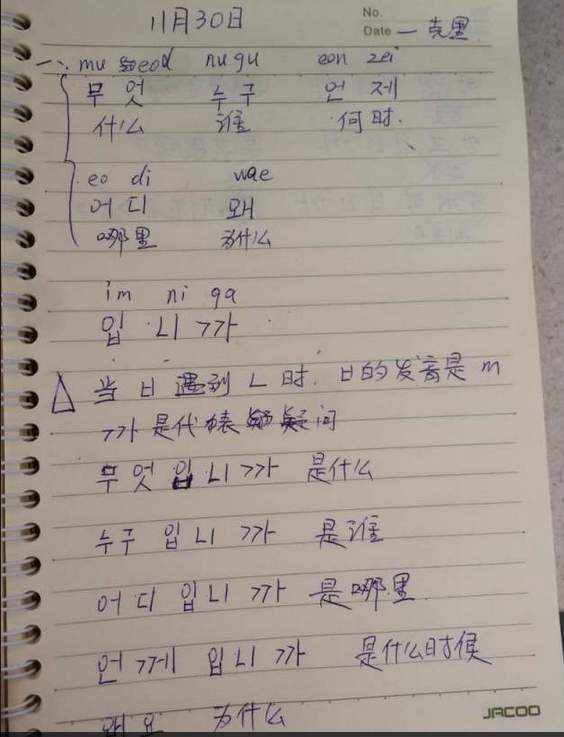 11月30日
No.
Date 一克里
一、mu seod nugu eon zei
무엇 누구 언제
什么 谁 何时.
eo di wae
어디 왜
哪里 为什么
im ni ga
입니까
△ 当ㅂ遇到ㄴ时. ㅂ的发音是m
까是代表疑问
무엇입니까 是什么
누구입니까 是谁
어디입니까 是哪里.
언께입니까 是什么时候
왜요 为什么
JACOO